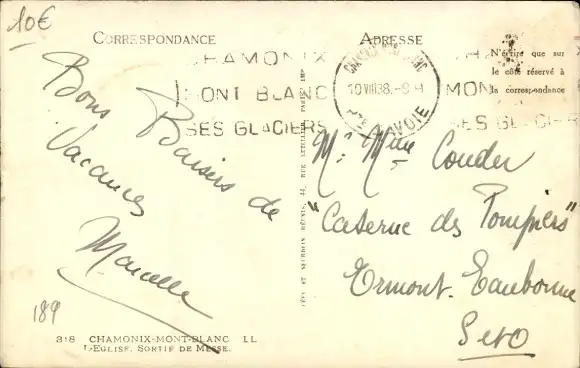 10€
CORRESPONDANCE
ADRESSE
CHAMONIX
MONT BLANC
SES GLACIERS
CHAMONIX MONT-BLANC
10 VIII 38
SAVOIE
MON
SES GLACIER
N'écrire que sur
le côté réservé à
la correspondance
Bons Baisers de
Vacances
Marcelle
Mr Mme Couder
"Caserne des Pompiers"
Ermont-Eaubonne
S et O
LÉVY ET NEURDEIN RÉUNIS, 44, RUE LETELLIER, PARIS IMP
189
318 CHAMONIX-MONT-BLANC LL
L'EGLISE. SORTIE DE MESSE.